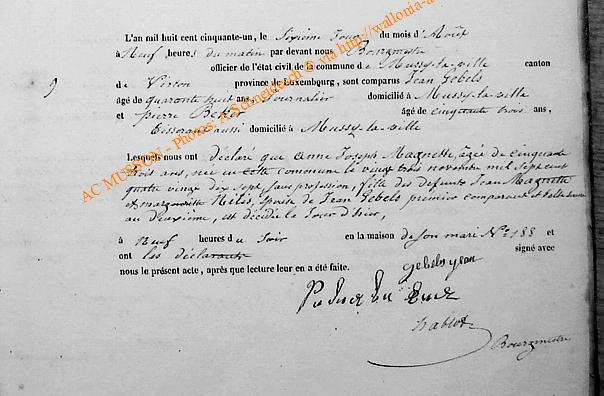 L'an mil huit cent cinquante-un, le Sixième Jour du mois d'Août
à Neuf heures du matin par devant nous Bourgmestre
officier de l'état civil de la commune de Mussy-la-ville canton
de Virton province de Luxembourg, sont comparus Jean Gebels
âgé de quarante huit ans, Journalier domicilié à Mussy-la-ville
et pierre âgé de cinquante trois ans,
Tisserand aussi domicilié à Mussy-la-ville
Lesquels nous ont déclaré que Anne Joseph Magnette, âgée de cinquante
trois ans, née en cette commune le vingt trois novembre mil sept cent
quatre vingt dix sept, sans profession, fille des defunts Jean Magnette
et marguerite épouse de Jean Gebels premier comparant et belle
au deuxième, est décédée le Jour d'hier,
à Neuf heures du Soir en la maison de son mari N° 188 et
ont les déclarants signé avec
nous le présent acte, après que lecture leur en a été faite.
gebels jean
Bourgmestre
AC MUSSON - Photos: A.Schneidesch © via http://wallonia-a